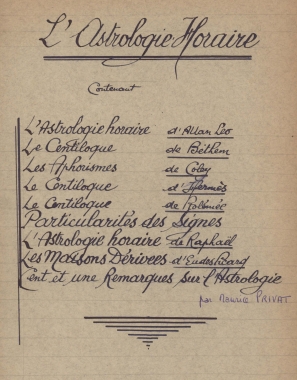 L'Astrologie Horaire
Contenant
L'Astrologie horaire d'Allan Leo
Le Centiloque de Béthem
Les Aphorismes de Coley
Le Centiloque d'Hermès
Le Centiloque de Ptolémée
Particularités des Signes
L'Astrologie horaire de Raphaël
Les Maisons Dérivées d'Eudes Picard
Cent et une Remarques sur l'Astrologie
par Maurice PRIVAT